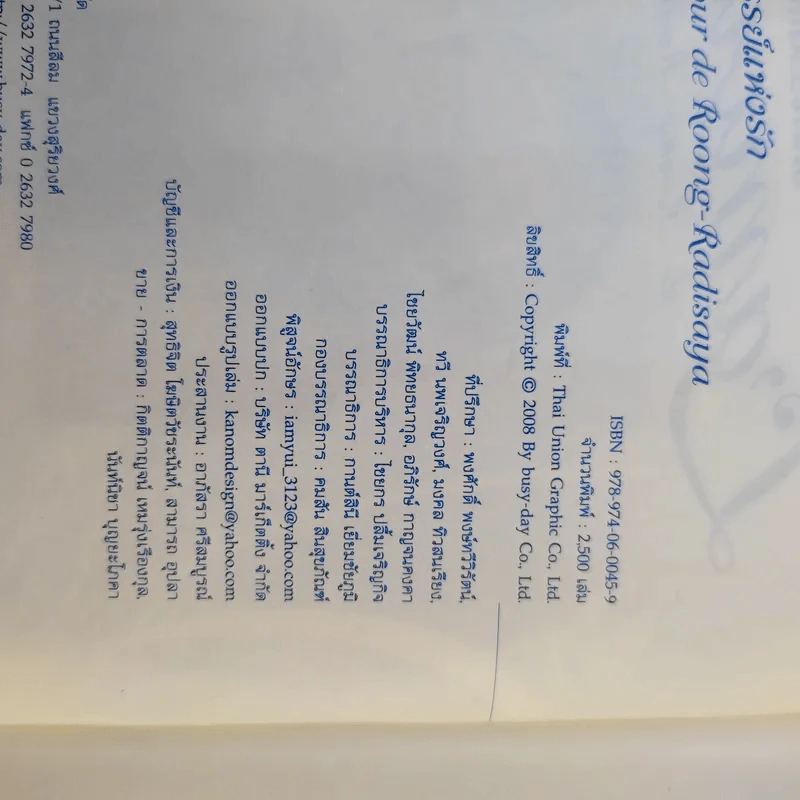 รรย์แห่งรัก
our de Roong-Radisaya
ISBN : 978-974-06-0045-9
จำนวนพิมพ์ : 2,500 เล่ม
พิมพ์ที่ : Thai Union Graphic Co., Ltd.
ลิขสิทธิ์ : Copyright © 2008 By busy-day Co., Ltd.
ที่ปรึกษา : พงศักดิ์ พงษ์ทวีวิรัตน์,
ทวี นพเจริญวงศ์, มงคล ทิวสนเรียง,
ไชยวัฒน์ พิทยธนากุล, อภิรักษ์ กาญจนคงคา
บรรณาธิการบริหาร : ไชยกร ปลื้มเจริญกิจ
บรรณาธิการ : กานต์สินี เยี่ยมชัยภูมิ
กองบรรณาธิการ : คมสัน สินสุขภัณฑ์
พิสูจน์อักษร : iamyui_3123@yahoo.com
ออกแบบปก : บริษัท ตานี มาร์เก็ตติ้ง จำกัด
ออกแบบรูปเล่ม : kanomdesign@yahoo.com
ประสานงาน : อาภัสรา ศรีสมบูรณ์
บัญชีและการเงิน : สุทธิจิต โฆษิตวัชระนันท์, สามารถ อุปลา
ขาย - การตลาด : กิตติกาญจน์ เหมรุ่งเรืองกุล,
นันท์นิชา บุญยะโภคา
/1 ถนนสีลม แขวงสุริยวงศ์
2632 7972-4 แฟกซ์ 0 2632 7980